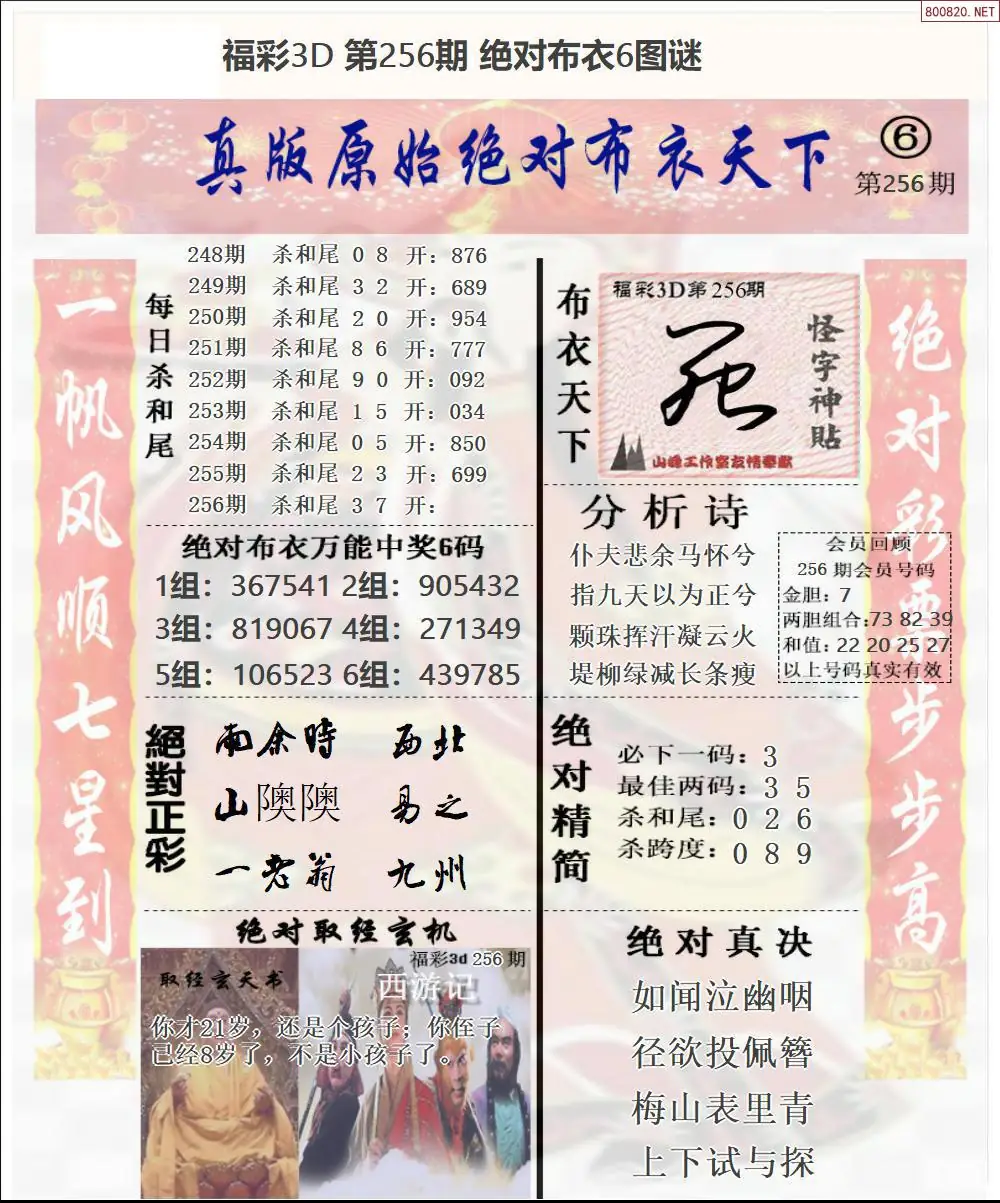 800820.NET
福彩3D 第256期 绝对布衣6图谜
真版原始绝对布衣天下
6
第256期
一帆风顺七星到
每日杀和尾
248期 杀和尾 0 8 开：876
249期 杀和尾 3 2 开：689
250期 杀和尾 2 0 开：954
251期 杀和尾 8 6 开：777
252期 杀和尾 9 0 开：092
253期 杀和尾 1 5 开：034
254期 杀和尾 0 5 开：850
255期 杀和尾 2 3 开：699
256期 杀和尾 3 7 开：
绝对布衣万能中奖6码
1组：367541 2组：905432
3组：819067 4组：271349
5组：106523 6组：439785
絕對正彩
南余時 西北
山隩隩 易之
一老翁 九州
绝对取经玄机
福彩3d 256期
取经玄天书
西游记
你才21岁，还是个孩子；你侄子
已经8岁了，不是小孩子了。
布衣天下
福彩3D第256期
怪字神貼
山峰工作室友情奉献
分析诗
仆夫悲余马怀兮
指九天以为正兮
颗珠挥汗凝云火
堤柳绿减长条瘦
会员回顾
256期会员号码
金胆：7
两胆组合:73 82 39
和值：22 20 25 27
以上号码真实有效
绝对精简
必下一码：3
最佳两码：3 5
杀和尾：0 2 6
杀跨度：0 8 9
绝对真决
如闻泣幽咽
径欲投佩簪
梅山表里青
上下试与探
绝对彩票步步高